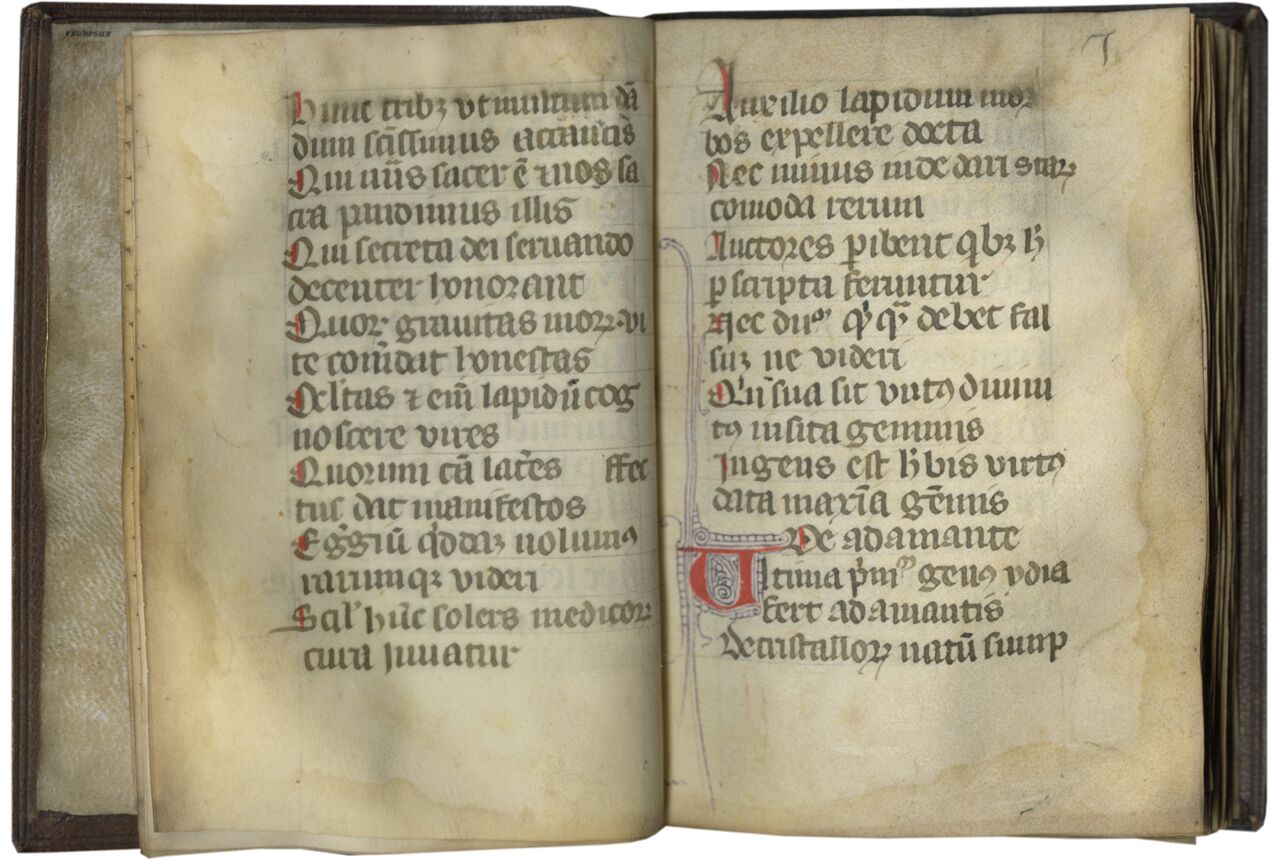 THOMPSON
hunc tribꝫ vt multum dā
dum scīssimus attamēs
Qui nīs sacer ē ⁊ nos sa
cra putdimus illis
Qui secreta dei seruando
decenter honorant
Quoꝝ grauitas moꝝ vi
te com̄dat honestas
Vtil'tas ⁊ em̄ lapidū cog
noscere vires
Quorum cā lat̄es effec
tus dat manifestos
Egg̃iū q̇ddaꝫ uolumꝯ
rarumqꝫ videri
Scil' hīc solers medicoꝝ
cura iuuatur
7
Auxilio lapidum mor
bos expellere docta
Nec minus inde dari cūctaꝝ
comoda rerum
Auctores ꝑibent qᵇꝫ h̄
ꝑscripta feruntur
Nec dubiū cuiqᷓ debet fal
suꝫ ne videri
Quī sua sit virtꝯ diuini
tꝯ insita gemmis
Ingens est h̄bis virtꝯ
data maxīa gēmis
De adamante
Vltima p̄mᵒ genꝯ ydia
fert adamantis
De cristalloꝝ natū sump